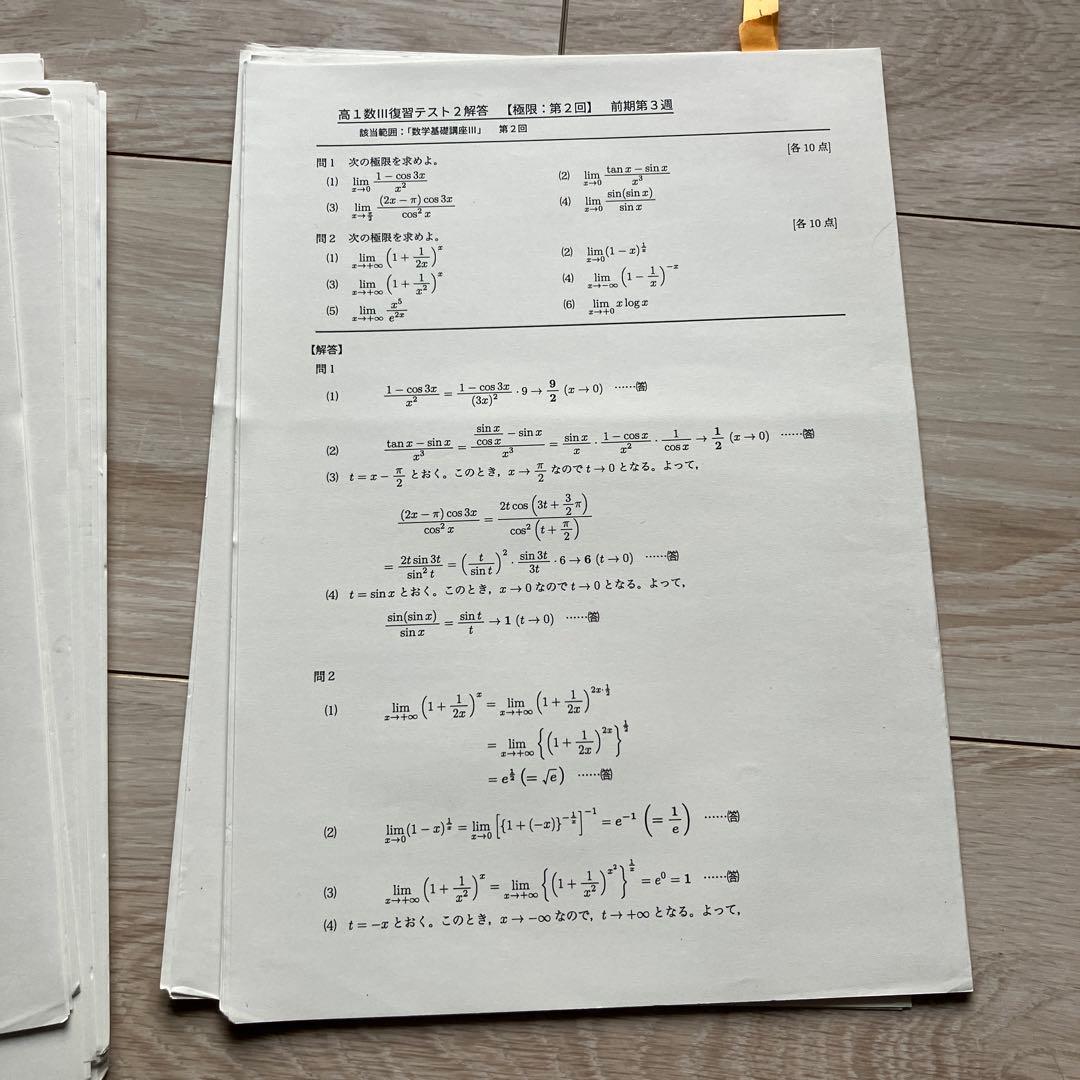 高１数III復習テスト２解答　【極限：第２回】　前期第３週
該当範囲：「数学基礎講座III」　第２回
[各 10 点]
問１　次の極限を求めよ。
(1) lim_{x→0} (1 − cos 3x)/x²　(2) lim_{x→0} (tan x − sin x)/x³
(3) lim_{x→π/2} ((2x − π) cos 3x)/(cos² x)　(4) lim_{x→0} sin(sin x)/sin x
[各 10 点]
問２　次の極限を求めよ。
(1) lim_{x→+∞} (1 + 1/(2x))^x　(2) lim_{x→0} (1 − x)^{1/x}
(3) lim_{x→+∞} (1 + 1/x²)^x　(4) lim_{x→−∞} (1 − 1/x)^{−x}
(5) lim_{x→+∞} x⁵/e^{2x}　(6) lim_{x→+0} x log x
【解答】
問１
(1) (1 − cos 3x)/x² = (1 − cos 3x)/(3x)² · 9 → 9/2 (x → 0) ……(答)
(2) (tan x − sin x)/x³ = (sin x/cos x − sin x)/x³ = sin x/x · (1 − cos x)/x² · 1/cos x → 1/2 (x → 0) ……(答)
(3) t = x − π/2 とおく。このとき，x → π/2 なので t → 0 となる。よって，
((2x − π) cos 3x)/(cos² x) = (2t cos (3t + 3/2 π))/(cos² (t + π/2))
= (2t sin 3t)/(sin² t) = (t/sin t)² · sin 3t/3t · 6 → 6 (t → 0) ……(答)
(4) t = sin x とおく。このとき，x → 0 なので t → 0 となる。よって，
sin(sin x)/sin x = sin t/t → 1 (t → 0) ……(答)
問２
(1) lim_{x→+∞} (1 + 1/(2x))^x = lim_{x→+∞} (1 + 1/(2x))^{2x·1/2}
= lim_{x→+∞} {(1 + 1/(2x))^{2x}}^{1/2}
= e^{1/2} (= √e) ……(答)
(2) lim_{x→0} (1 − x)^{1/x} = lim_{x→0} [{1 + (−x)}^{−1/x}]^{−1} = e^{−1} (= 1/e) ……(答)
(3) lim_{x→+∞} (1 + 1/x²)^x = lim_{x→+∞} {(1 + 1/x²)^{x²}}^{1/x} = e⁰ = 1 ……(答)
(4) t = −x とおく。このとき，x → −∞ なので，t → +∞ となる。よって，